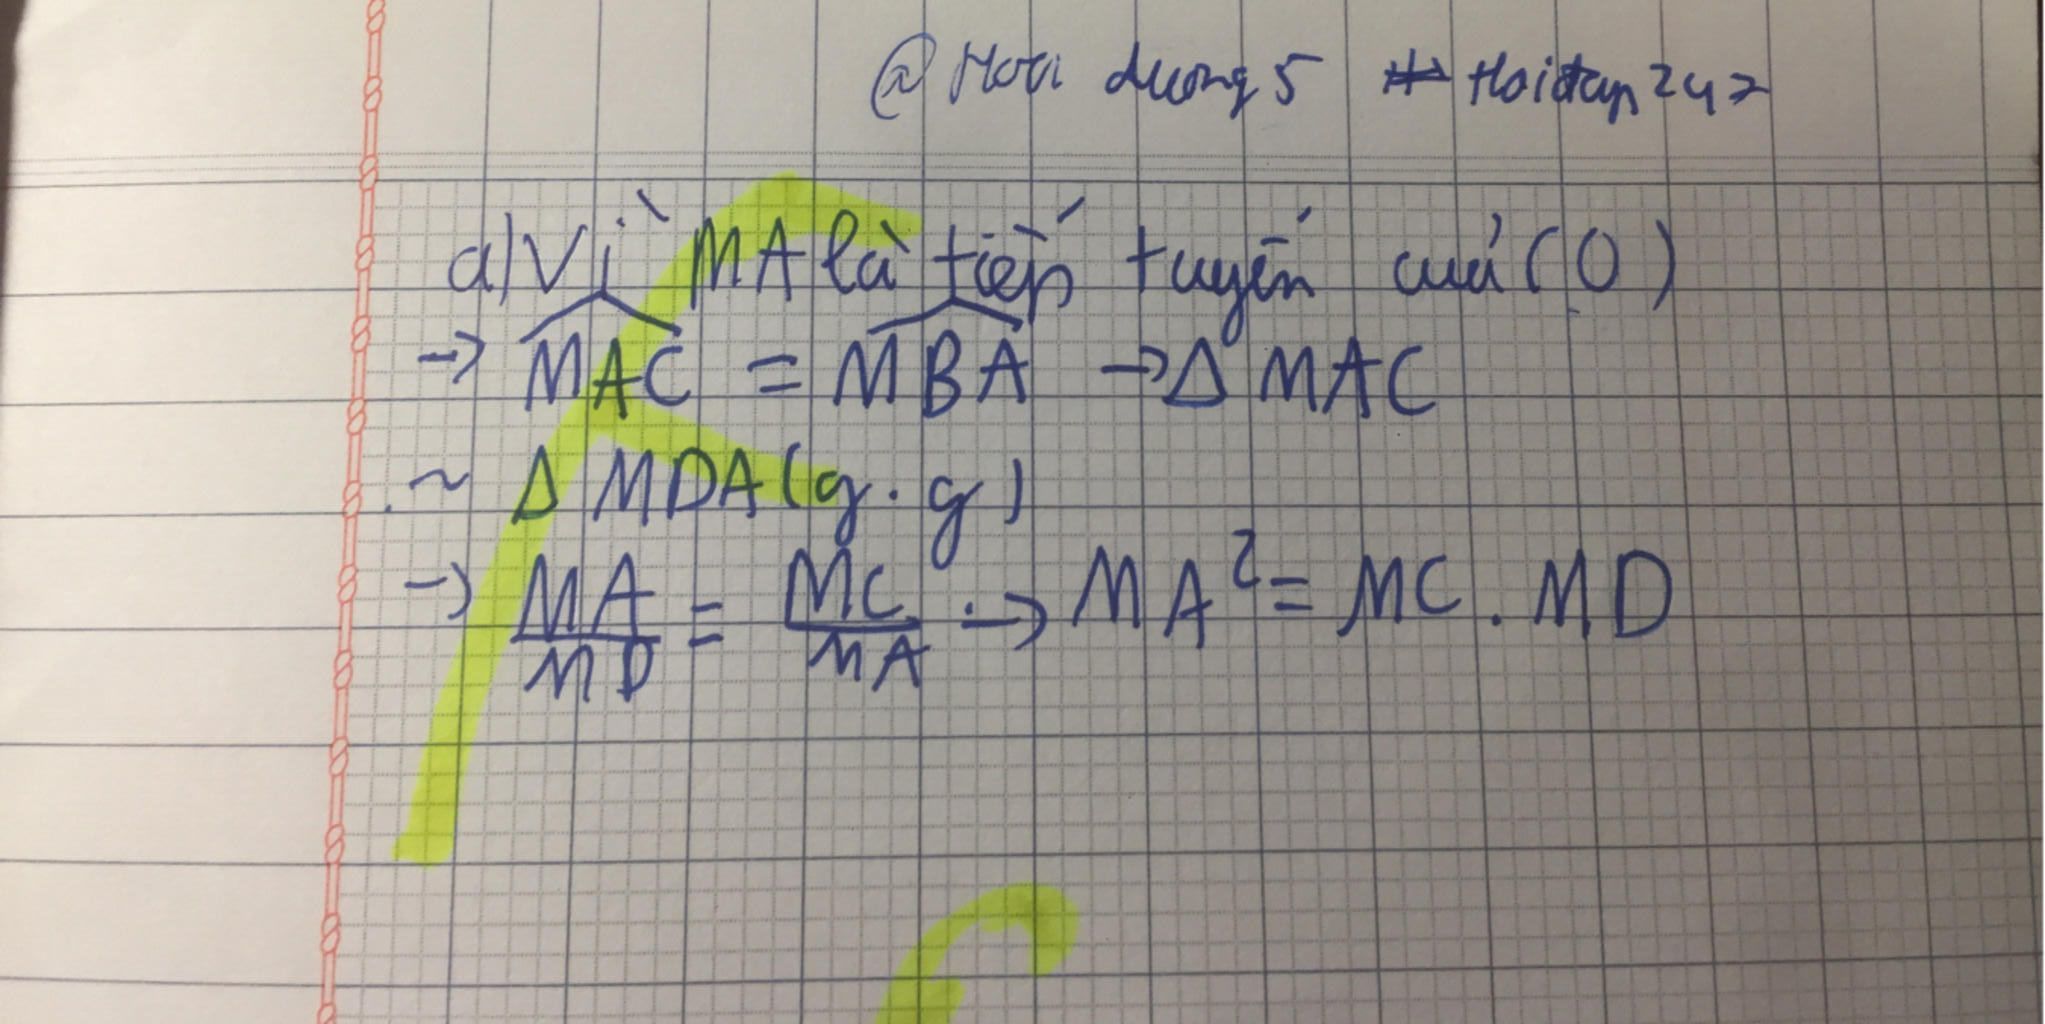 @Hoai duong5 # Hoidap247
a) Vì MA là tiếp tuyến của (O)
→ MAC = MBA → Δ MAC
~ Δ MDA (g.g)
→ MA/MD = MC/MA → MA² = MC . MD